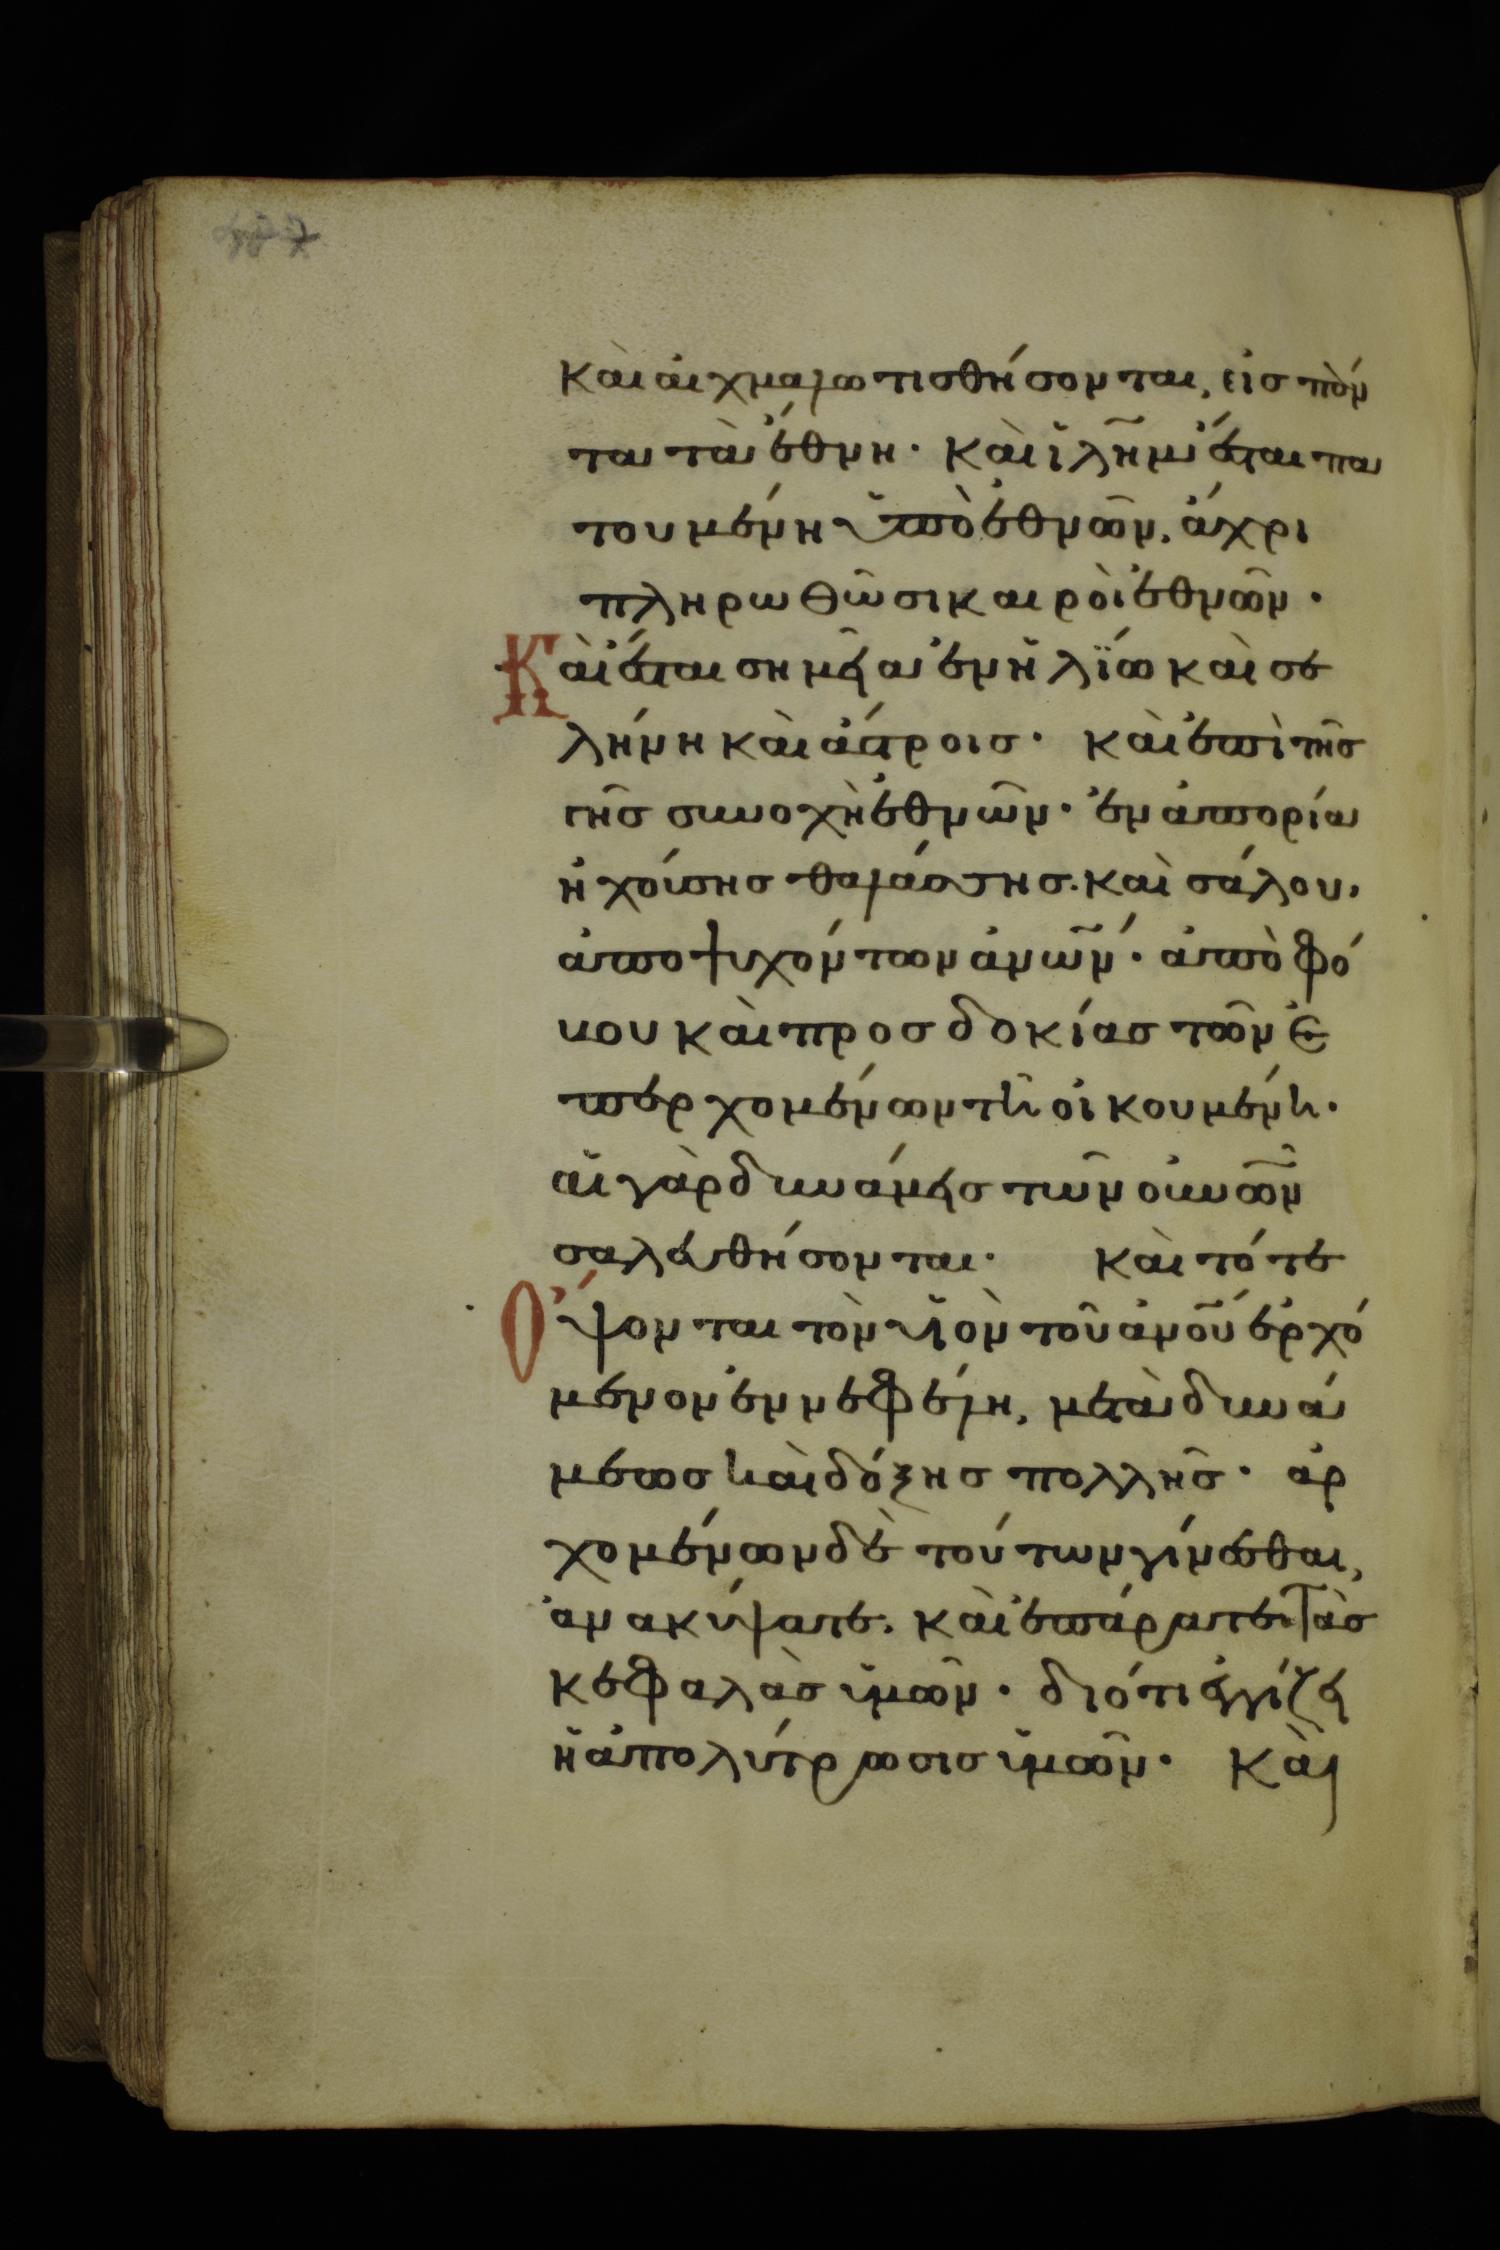 Καὶ αἰχμαλωτισθήσονται, εἰσ πάν
τα τὰ ἔθνη· καὶ ἰλη̅μ ἔσται πα
τουμένη ὑπὸ ἐθνῶν, ἄχρι
πληρωθῶσι καιροὶ ἐθνῶν·
Καὶ ἔσται σημεῖα ἐν ἡλίω καὶ σε
λήνη καὶ ἄστροισ· καὶ ἐπὶ τῆσ
γῆσ συνοχὴ ἐθνῶν· ἐν ἀπορία
ἠχούσησ θαλάσσησ. καὶ σάλου,
ἀποψυχόντων ἀν̅ω̅ν· ἀπὸ φό
βου καὶ προσδοκίασ τῶν ἐ
περχομένων τῆ οἰκουμένη·
αἱ γὰρ δυνάμεισ τῶν οὐν̅ω̅ν
σαλευθήσονται· καὶ τότε
Ὄψονται τὸν υἱὸν τοῦ ἀν̅ο̅υ ἐρχό
μενον ἐν νεφέλη, μετὰ δυνά
μεωσ καὶ δόξησ πολλῆσ· ἀρ
χομένων δὲ τούτων γίνεσθαι,
ἀνακύψατε. καὶ ἐπάρατε τὰσ
κεφαλὰσ ὑμῶν· διότι ἐγγίζει
ἡ ἀπολύτρωσισ ὑμῶν· Καὶ